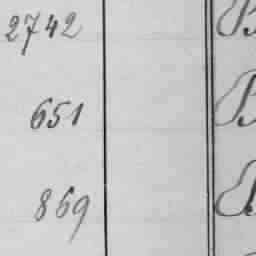 2742 B
651 B
869